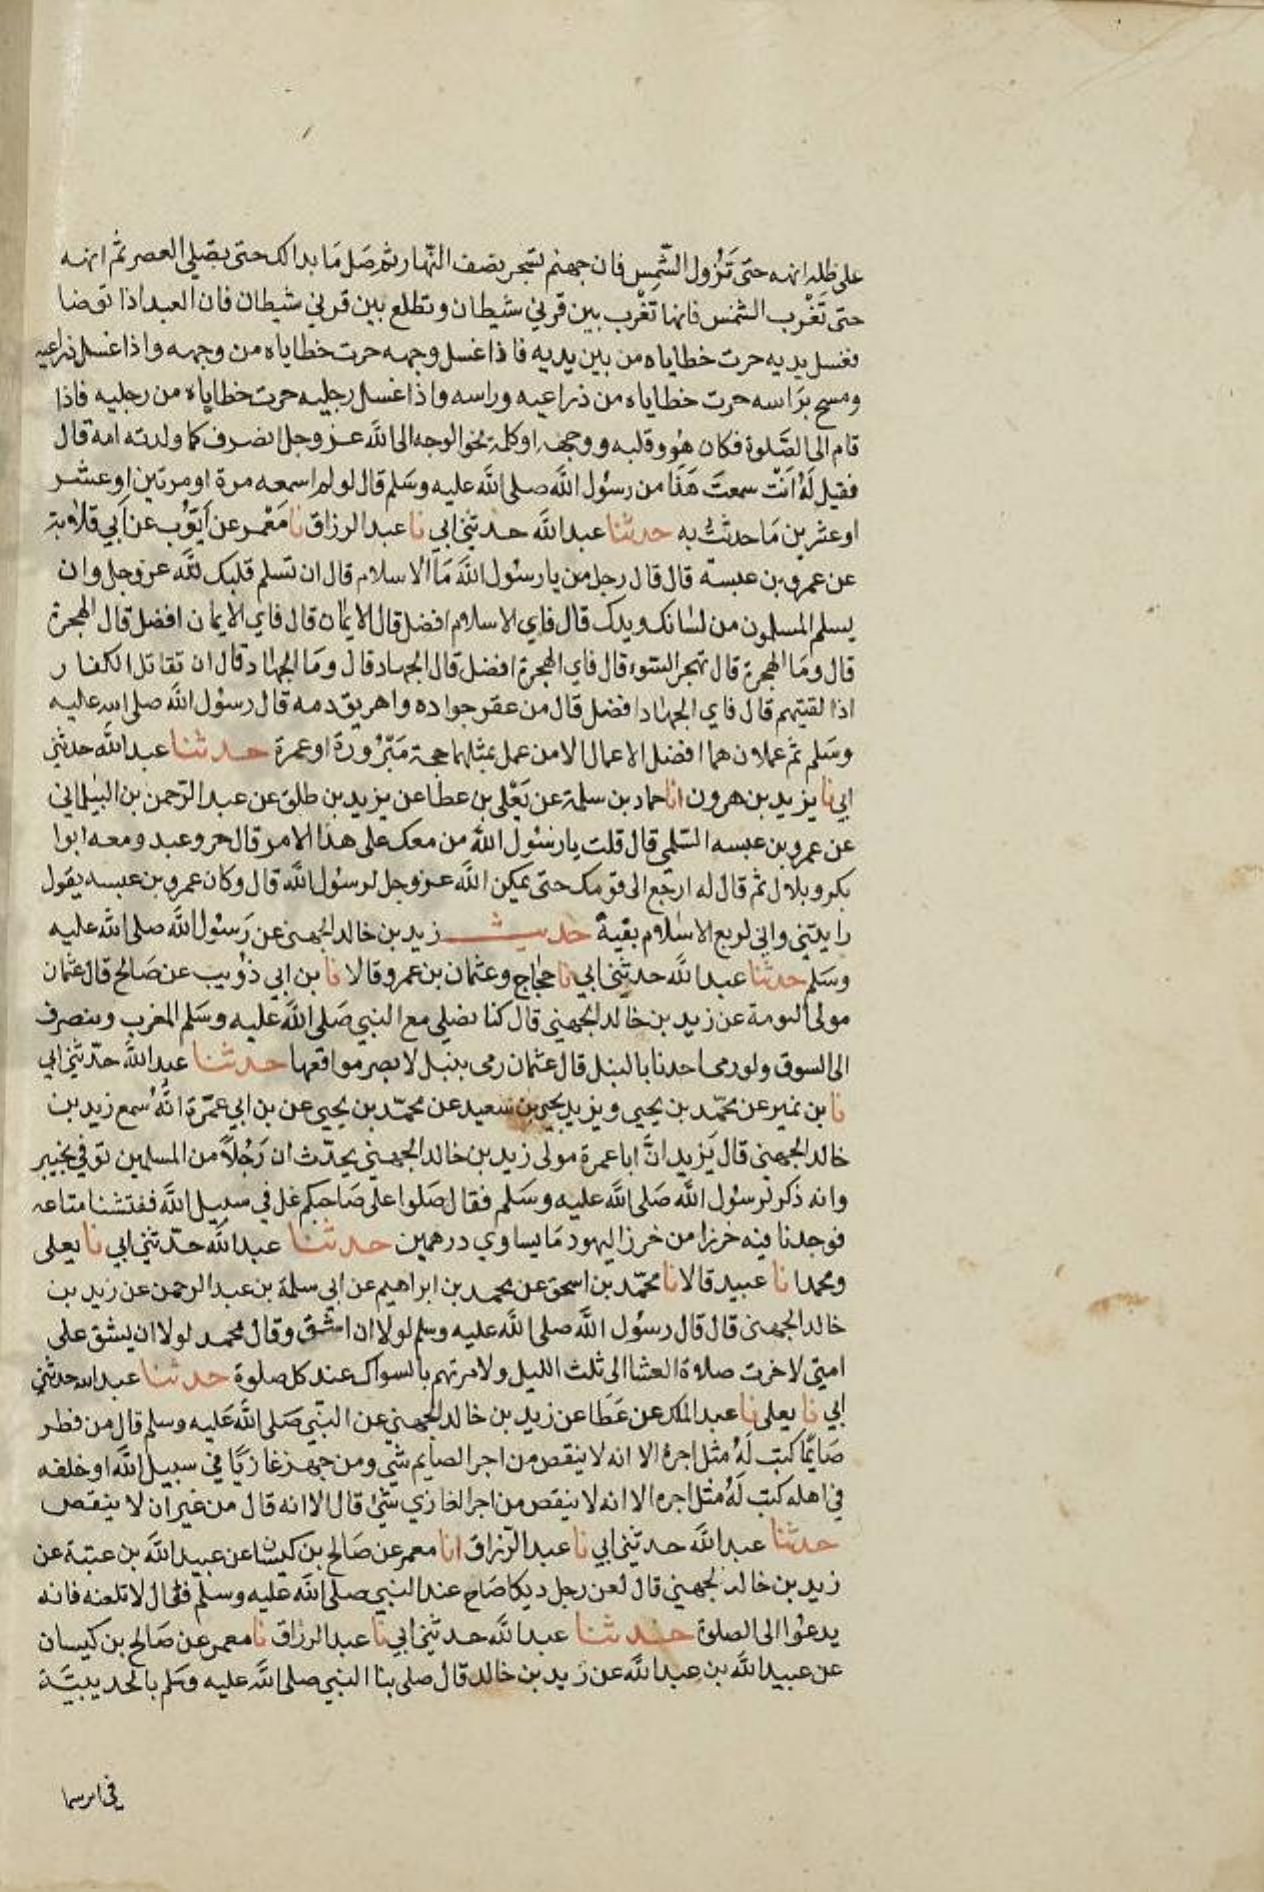 على ظله انهه حتى تزول الشمس فان جهنم تسجر نصف النهار ثم صل ما بدا لك حتى تصلي العصر ثم انهه
حتى تغرب الشمس فانها تغرب بين قرني شيطان وتطلع بين قرني شيطان فان العبد اذا توضا
فغسل يديه خرت خطاياه من بين يديه فاذا غسل وجهه خرت خطاياه من وجهه واذا غسل ذراعيه
ومسح براسه خرت خطاياه من ذراعيه وراسه واذا غسل رجليه خرت خطاياه من رجليه فاذا
قام الى الصلوة فكان هو وقلبه ووجهه او كله نحو الوجه الى الله عز وجل انصرف كما ولدته امه قال
فقيل له انت سمعت هذا من رسول الله صلى الله عليه وسلم قال لو لم اسمعه مرة او مرتين او عشر
او عشرين ما حدثت به حدثنا عبد الله حدثني ابي نا عبد الرزاق نا معمر عن ايوب عن ابي قلابة
عن عمرو بن عبسة قال قال رجل من يا رسول الله ما الاسلام قال ان تسلم قلبك لله عز وجل وان
يسلم المسلمون من لسانك ويدك قال فاي الاسلام افضل قال الايمان قال فاي الايمان افضل قال الهجرة
قال وما الهجرة قال تهجر السوء قال فاي الهجرة افضل قال الجهاد قال وما الجهاد قال ان تقاتل الكفار
اذا لقيتهم قال فاي الجهاد افضل قال من عقر جواده واهريق دمه قال رسول الله صلى الله عليه
وسلم ثم عملان هما افضل الاعمال الا من عمل بمثلهما حجة مبرورة او عمرة حدثنا عبد الله حدثني
ابي نا يزيد بن هرون انا حماد بن سلمة عن يعلى بن عطا عن يزيد بن طلق عن عبد الرحمن بن البيلماني
عن عمرو بن عبسه السلمي قال قلت يا رسول الله من معك على هذا الامر قال حر وعبد ومعه ابوا
بكر وبلال ثم قال له ارجع الى قومك حتى يمكن الله عز وجل لرسول الله قال وكان عمرو بن عبسه يقول
رايتني واني لربع الاسلام بقية حديث زيد بن خالد الجهني عن رسول الله صلى الله عليه
وسلم حدثنا عبد الله حدثني ابي نا حجاج وعثمان بن عمرو قالا نا بن ابي ذؤيب عن صالح قال عثمان
مولى التومة عن زيد بن خالد الجهني قال كنا نصلي مع النبي صلى الله عليه وسلم المغرب وننصرف
الى السوق ولو رمى احدنا بالنبل قال عثمان رمى بنبل لابصر مواقعها حدثنا عبد الله حدثني ابي
نا بن نمير عن محمد بن يحيى ويزيد يحيى بن سعيد عن محمد بن يحيى عن بن ابي عمرة انه سمع زيد بن
خالد الجهني قال يزيد ان ابا عمرة مولى زيد بن خالد الجهني يحدث ان رجلا من المسلمين توفي بخيبر
وانه ذكر لرسول الله صلى الله عليه وسلم فقال صلوا على صاحبكم غل في سبيل الله ففتشنا متاعه
فوجدنا فيه خرزا من خرز اليهود ما يساوي درهمين حدثنا عبد الله حدثني ابي نا يعلى
ومحمدا نا عبيد قالا نا محمد بن اسحق عن محمد بن ابراهيم عن ابي سلمة بن عبد الرحمن عن زيد بن
خالد الجهني قال قال رسول الله صلى الله عليه وسلم لولا ان اشق وقال محمد لولا ان يشق على
امتي لاخرت صلاة العشا الى ثلث الليل ولامرتهم بالسواك عند كل صلوة حدثنا عبد الله حدثني
ابي نا يعلى نا عبد الملك عن عطا عن زيد بن خالد الجهني عن النبي صلى الله عليه وسلم قال من فطر
صايما كتب له مثل اجره الا انه لا ينقص من اجر الصايم شي ومن جهز غازيا في سبيل الله او خلفه
في اهله كتب له مثل اجره الا انه لا ينقص من اجر الغازي شي قال الا انه قال من غير ان لا ينقص
حدثنا عبد الله حدثني ابي نا عبد الرزاق انا معمر عن صالح بن كيسان عن عبيد الله بن عتبة عن
زيد بن خالد الجهني قال لعن رجل ديكا صاح عند النبي صلى الله عليه وسلم فقال لا تلعنه فانه
يدعوا الى الصلوة حدثنا عبد الله حدثني ابي نا عبد الرزاق نا معمر عن صالح بن كيسان
عن عبيد الله بن عبد الله عن زيد بن خالد قال صلى بنا النبي صلى الله عليه وسلم بالحديبية
في اثر سما